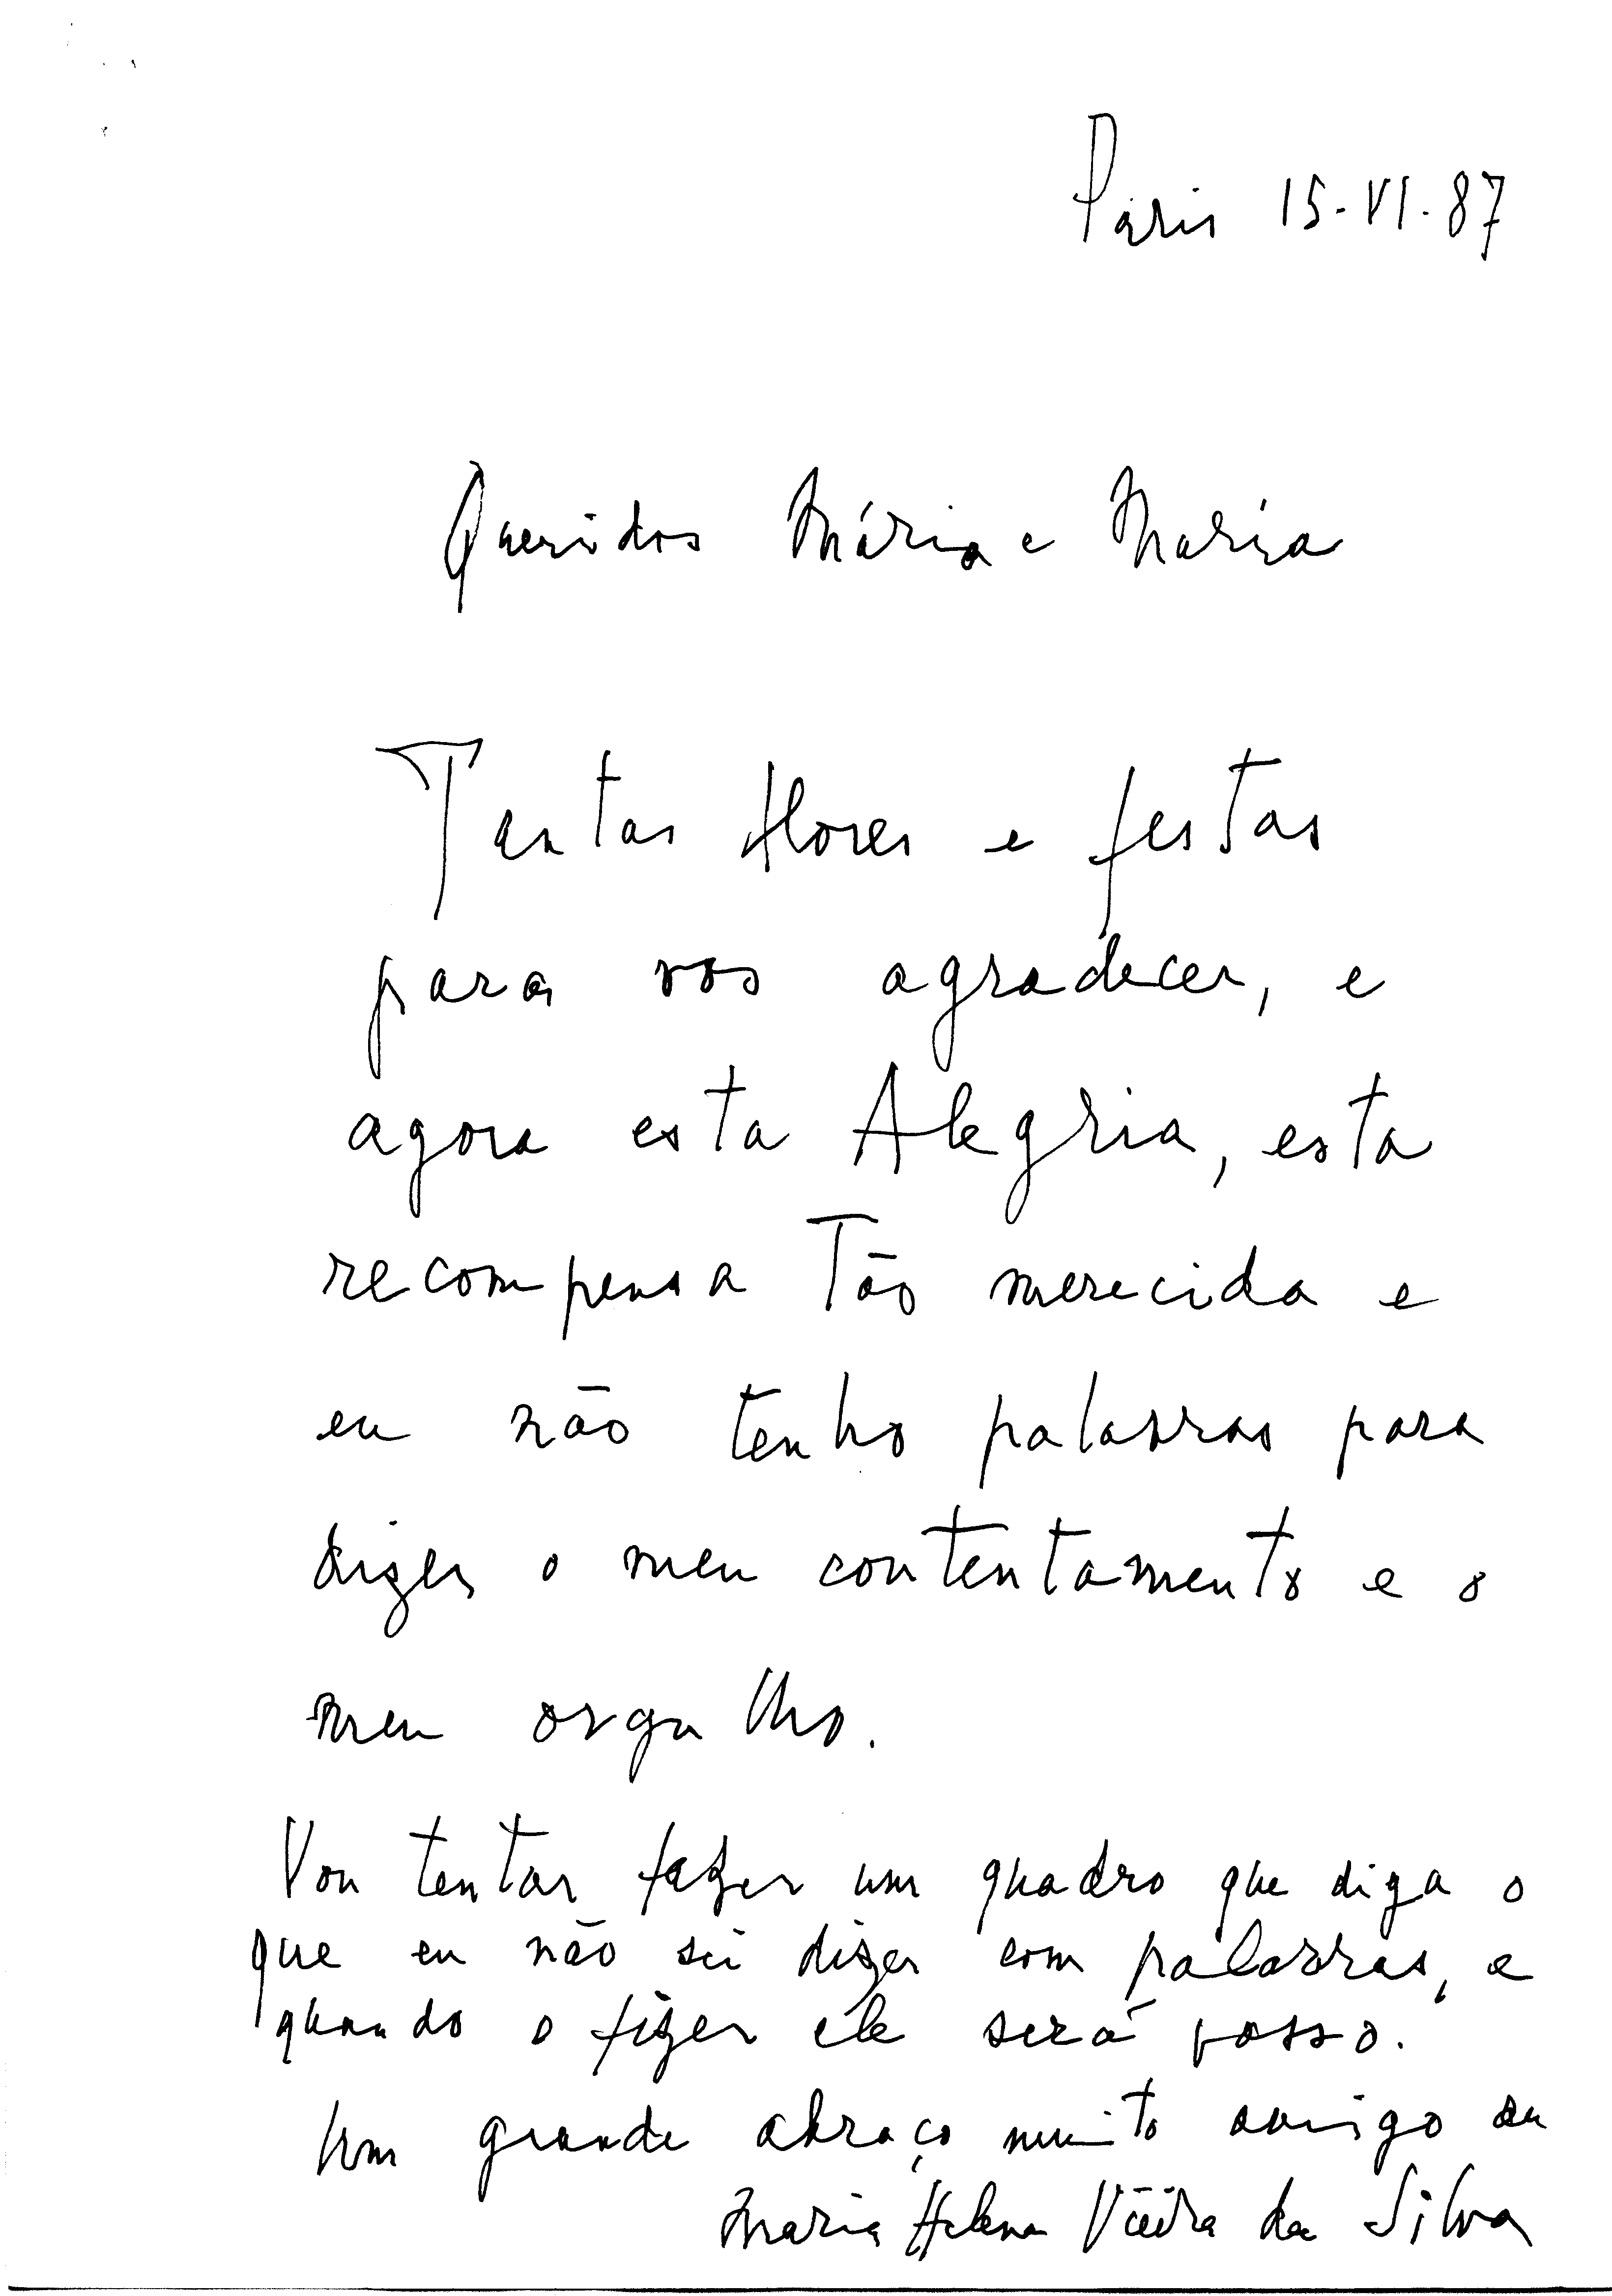 Paris 15-VI-87
Queridos Mário e Maria
Tantas flores e festas
para vos agradecer, e
agora esta Alegria, esta
recompensa Tão merecida e
eu não tenho palavras para
dizer o meu contentamento e o
meu orgulho.
Vou tentar fazer um quadro que diga o
que eu não sei dizer com palavras, e
quando o fizer ele será vosso.
Um grande abraço muito amigo da
Maria Helena Vieira da Silva